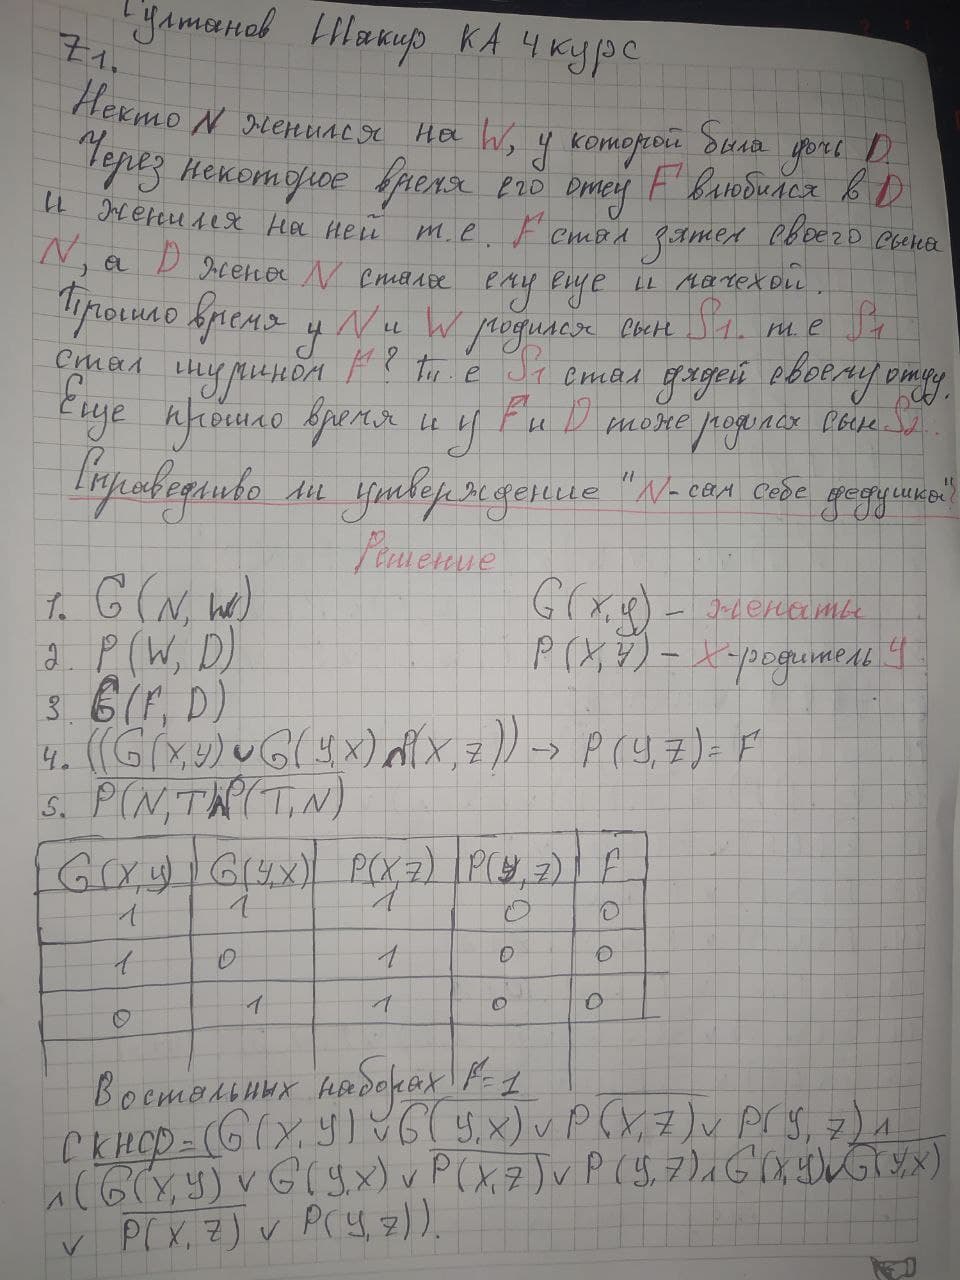 Султанов Шакир КА 4 курс
Z1.
Некто N женился на W, у которой была дочь D
Через некоторое время его отец F влюбился в D
и женился на ней т.е. F стал зятем своего сына
N, а D жена N стала ему еще и мачехой.
Прошло время у N и W родился сын S1. т.е S1
стал шурином F? Т.е S1 стал дядей своему отцу.
Еще прошло время и у F и D тоже родился сын S2.
Справедливо ли утверждение "N-сам себе дедушка"?
Решение
1. G(N, W) G(x,y) - женаты
2. P(W, D) P(x,y) - x-родитель y
3. G(F, D)
4. ((G(x,y) ∨ G(y,x) ∧ P(x,z)) → P(y,z) = F
5. P(N,T) ∧ P(T,N)
G(x,y) G(y,x) P(x,z) P(y,z) F
1 1 1 0 0
1 0 1 0 0
0 1 1 0 0
В остальных наборах F=1
СКНФ=(G(x,y) ∨ G(y,x) ∨ P(x,z) ∨ P(y,z) ∧
∧(G(x,y) ∨ G(y,x) ∨ P(x,z) ∨ P(y,z) ∧ G(x,y) ∨ G(y,x)
∨ P(x,z) ∨ P(y,z)).